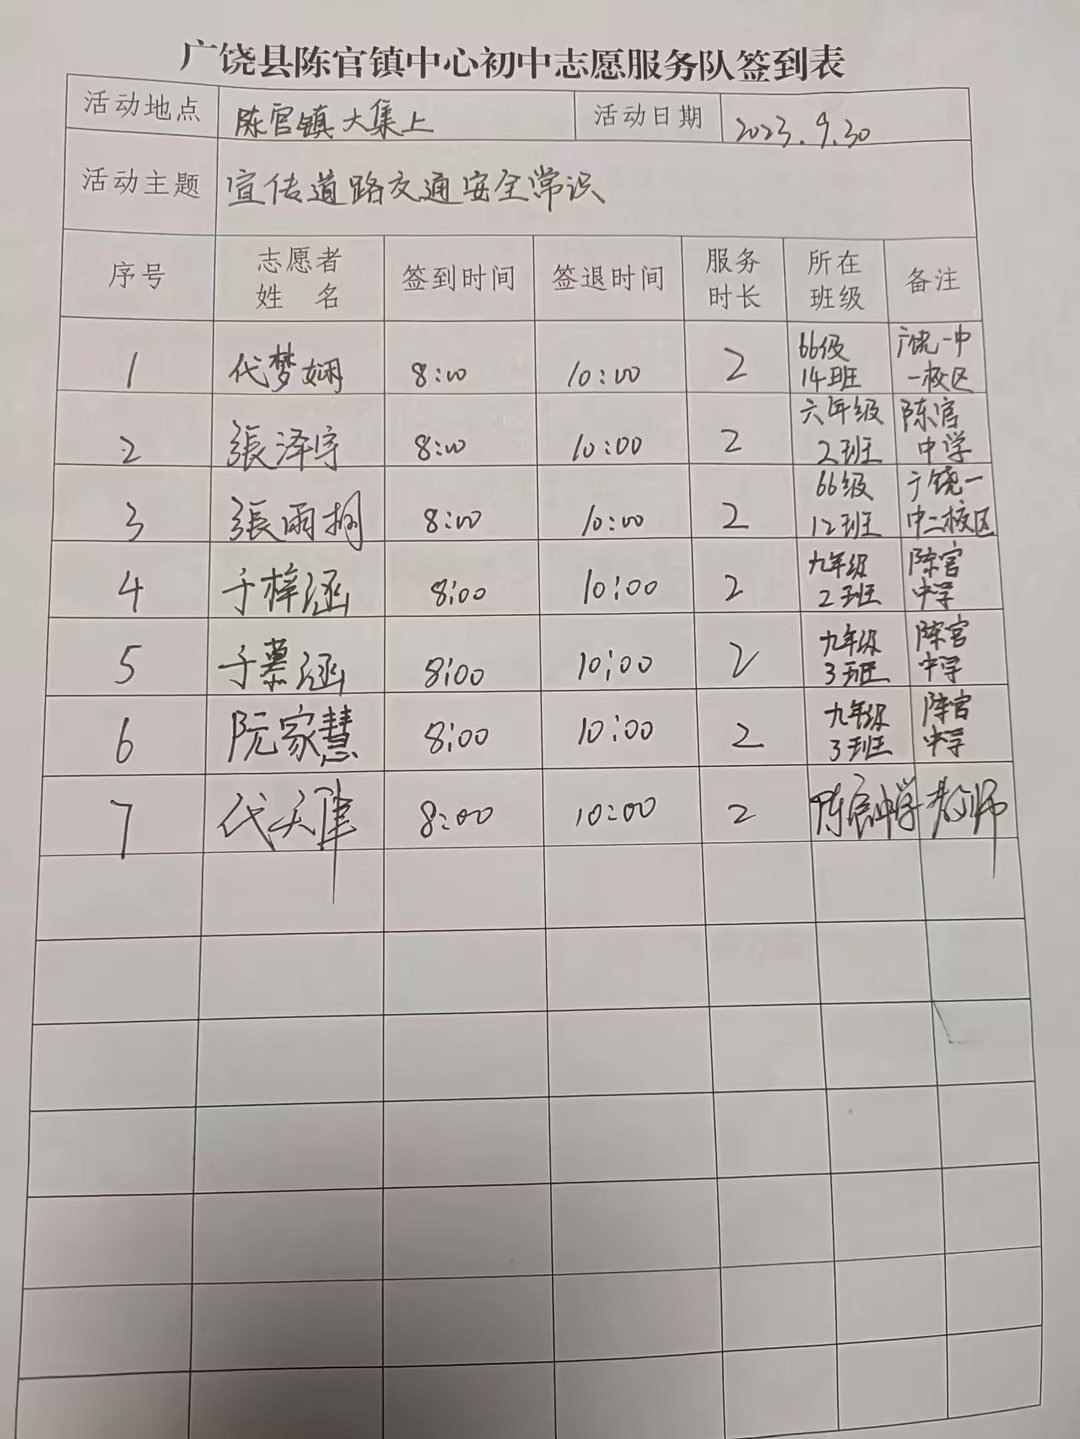 广饶县陈官镇中心初中志愿服务队签到表
活动地点 陈官镇大集上 活动日期 2023.9.30
活动主题 宣传道路交通安全常识
序号 志愿者姓名 签到时间 签退时间 服务时长 所在班级 备注
1 代梦娴 8:00 10:00 2 66级14班 广饶一中一校区
2 張泽宇 8:00 10:00 2 六年级2班 陈官中学
3 張雨桐 8:00 10:00 2 66级12班 广饶一中二校区
4 于梓涵 8:00 10:00 2 九年级2班 陈官中学
5 于慕涵 8:00 10:00 2 九年级3班 陈官中学
6 阮家慧 8:00 10:00 2 九年级3班 陈官中学
7 代天津 8:00 10:00 2 陈官中学教师